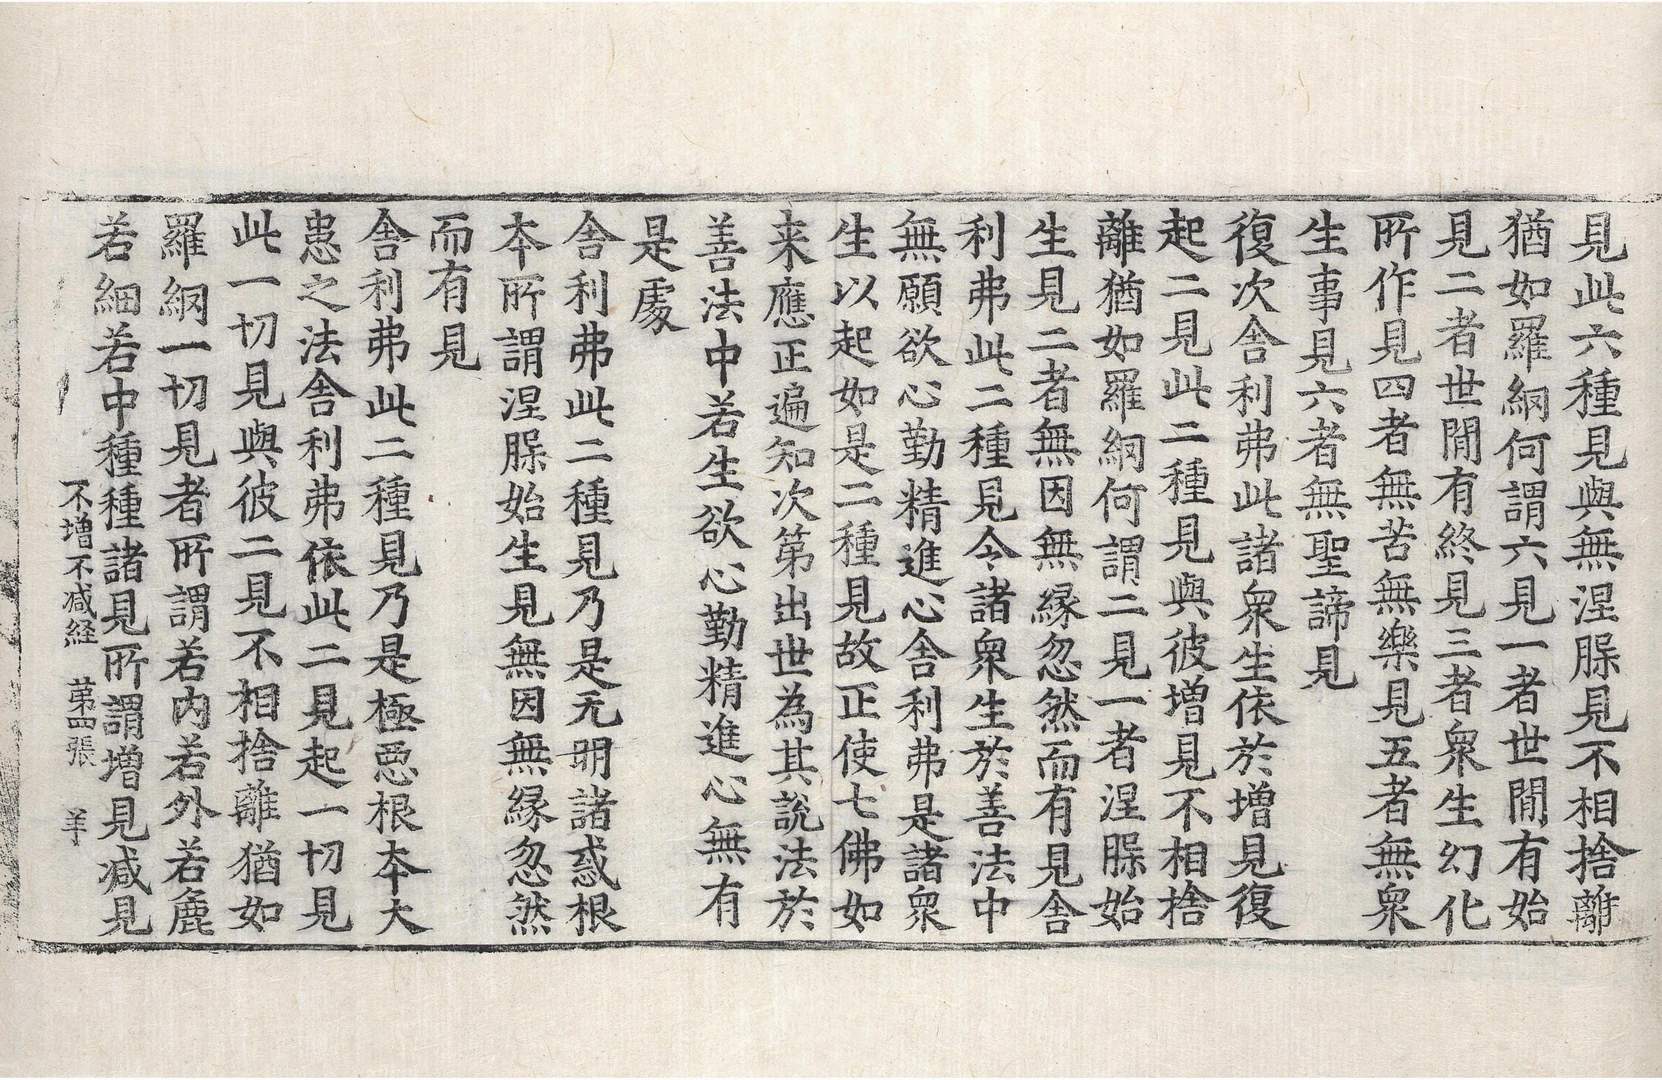 見此六種見與無涅槃見不相捨離
猶如羅網何謂六見一者世間有始
見二者世間有終見三者衆生幻化
所作見四者無苦無樂見五者無衆
生事見六者無聖諦見
復次舎利弗此諸衆生依於增見復
起二見此二種見與彼增見不相捨
離猶如羅網何謂二見一者涅槃始
生見二者無因無緣忽然而有見舎
利弗此二種見令諸衆生於善法中
無願欲心勤精進心舎利弗是諸衆
生以起如是二種見故正使七佛如
来應正遍知次第出世為其說法於
善法中若生欲心勤精進心無有
是處
舎利弗此二種見乃是无明諸惑根
本所謂涅槃始生見無因無緣忽然
而有見
舎利弗此二種見乃是極惡根本大
患之法舎利弗依此二見起一切見
此一切見與彼二見不相捨離猶如
羅網一切見者所謂若内若外若麁
若細若中種種諸見所謂增見减見
不增不减経 第四張 羊